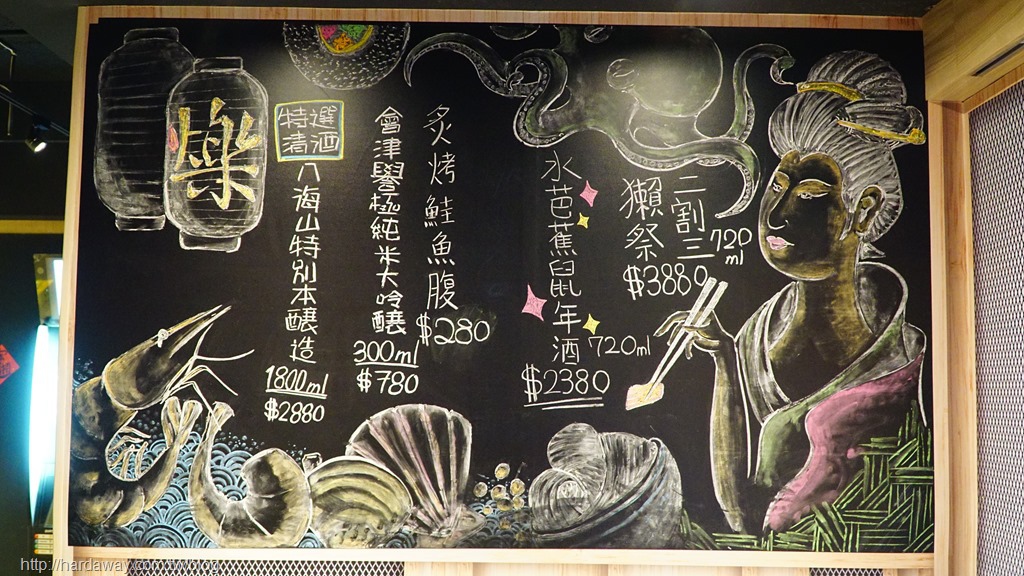 樂
特選
清酒
八海山特別本釀造
1800ml
$2880
會津譽極純米大吟釀
300ml
$780
炙烤鮭魚腹
$280
水芭蕉鼠年酒
720ml
$2380
獺祭
二割三
720ml
$3880